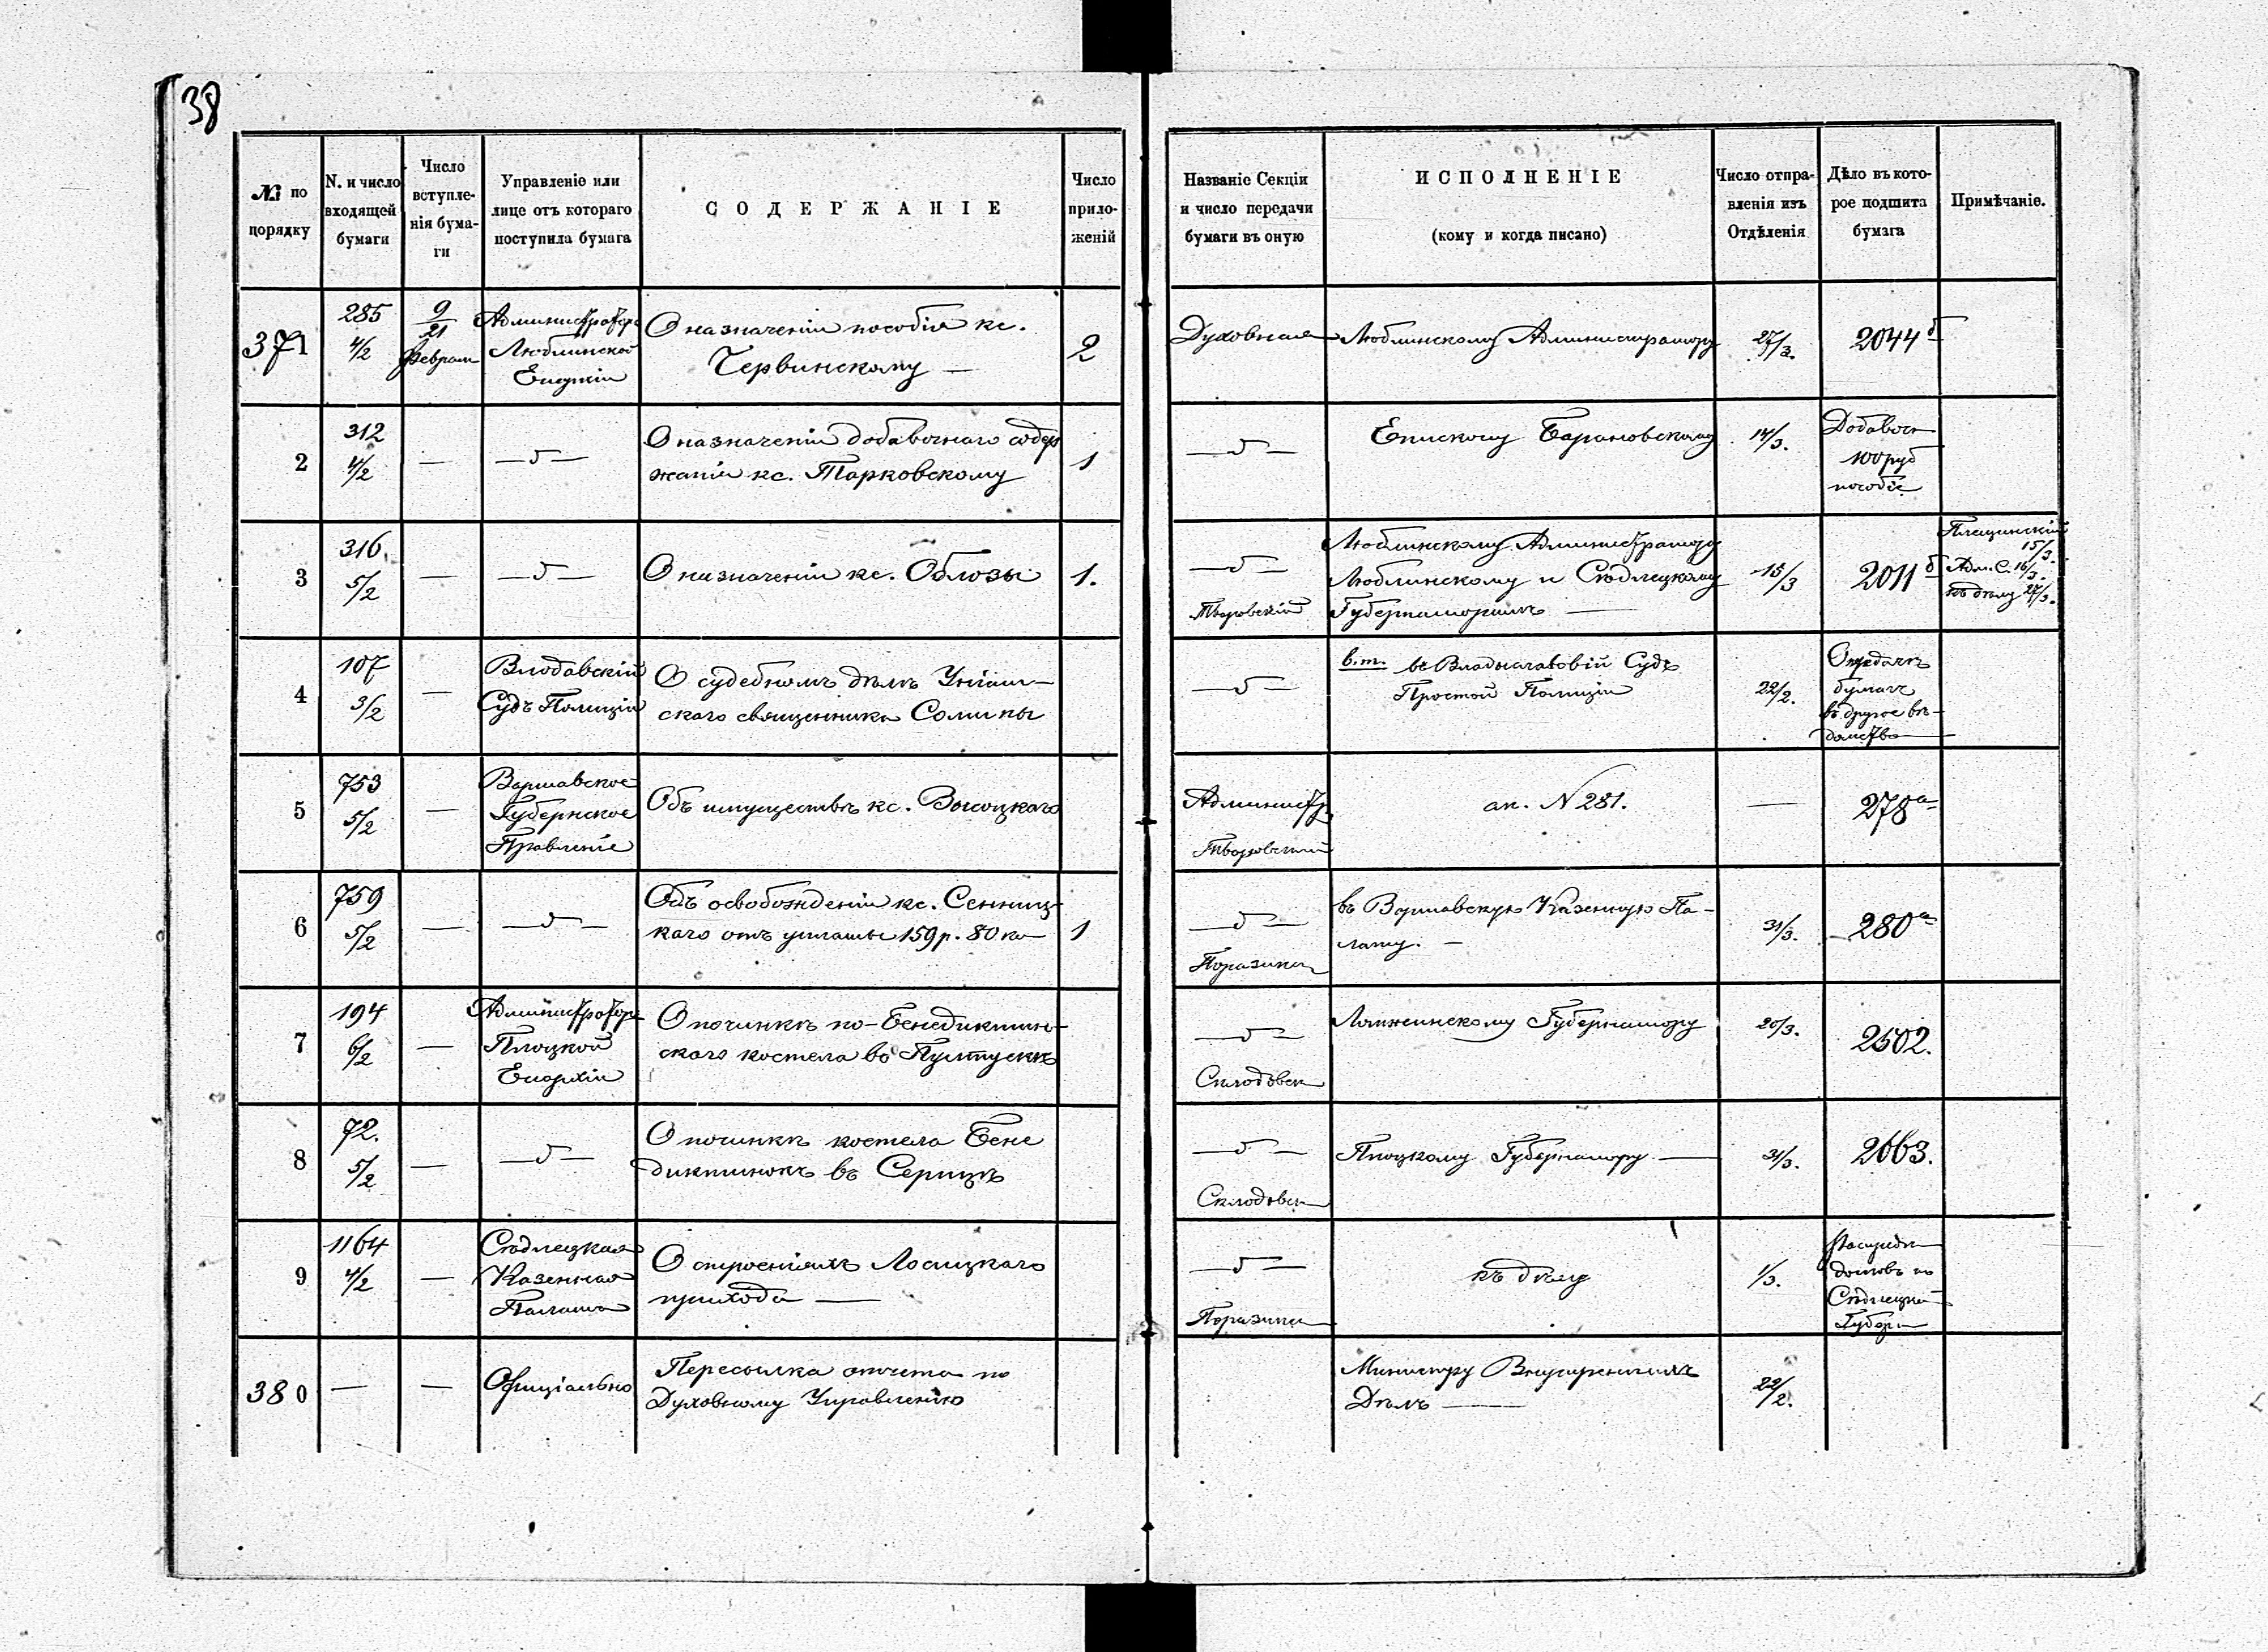 38
№ по порядку
N. и число входящей бумаги
Число вступле-нія бума-ги
Управленіе или лице отъ котораго поступила бумага
СОДЕРЖАНІЕ
Число прило-женій
Названіе Секціи и число передачи бумаги въ оную
ИСПОЛНЕНІЕ
(кому и когда писано)
Число отпра-вленія изъ Отдѣленія
Дѣло въ кото-рое подшита бумага
Примѣчаніе.
371
285
4/2
9/21
Феврал
Администраторъ
Люблинской
Епархіи
О назначеніи пособія кс.
Червинскому —
2
Духовная
Люблинскому Администратору
27/3.
2044 б
2
312
4/2
—
—〃—
О назначеніи добавочнаго содер
жанія кс. Тарковскому
1
—〃—
Епископу Барановскому
14/3.
Добавоч
100 руб
пособіе
3
316
5/2
—
—〃—
О назначеніи кс. Облозы
1.
—〃—
Творовскій
Люблинскому Администратору
Люблинскому и Сѣдлецкому
Губернаторамъ —
15/3
2011 б
15/3.
Адм. С. 16/3.
къ дѣлу 27/3.
4
107
3/2
—
Влодавскій
Судъ Полиціи
О судебномъ дѣлѣ Уніат-
скаго священника Солины
—〃—
в.т. въ Судъ
Простой Полиціи
22/2.
бумагъ
въ другое вѣ-
домство
5
753
5/2
—
Варшавское
Губернское
Правленіе
Объ имуществѣ кс. Высоцкаго
Администр.
Творовскій
ап. N 281.
—
278 а
6
759
5/2
—
—〃—
Объ освобожденіи кс. Сенниц-
каго отъ уплаты 159 р. 80 ко
1
—〃—
Поразинск
въ Варшавскую Казенную Па-
лату. —
31/3.
280 а
7
194
6/2
—
Администраторъ
Плоцкой
Епархіи
О починкѣ по-Бенедиктин-
скаго костела въ Пултускѣ
—〃—
Склодовск
Ломжинскому Губернатору
20/3.
2502.
8
72.
5/2
—
—〃—
О починкѣ костела Бене
диктинокъ въ Серпцѣ
—〃—
Склодовск
Плоцкому Губернатору —
31/3.
2663.
9
1164
4/2
—
Сѣдлецкая
Казенная
Палата
О строеніяхъ Лосицкаго
прихода —
—〃—
Поразинск
къ дѣлу
1/3.
домовъ по
Сѣдлецкой
Губерн
380
—
—
Офиціально
Пересылка отчета по
Духовному Управленію
Министру Внутреннихъ
Дѣлъ —
22/2.